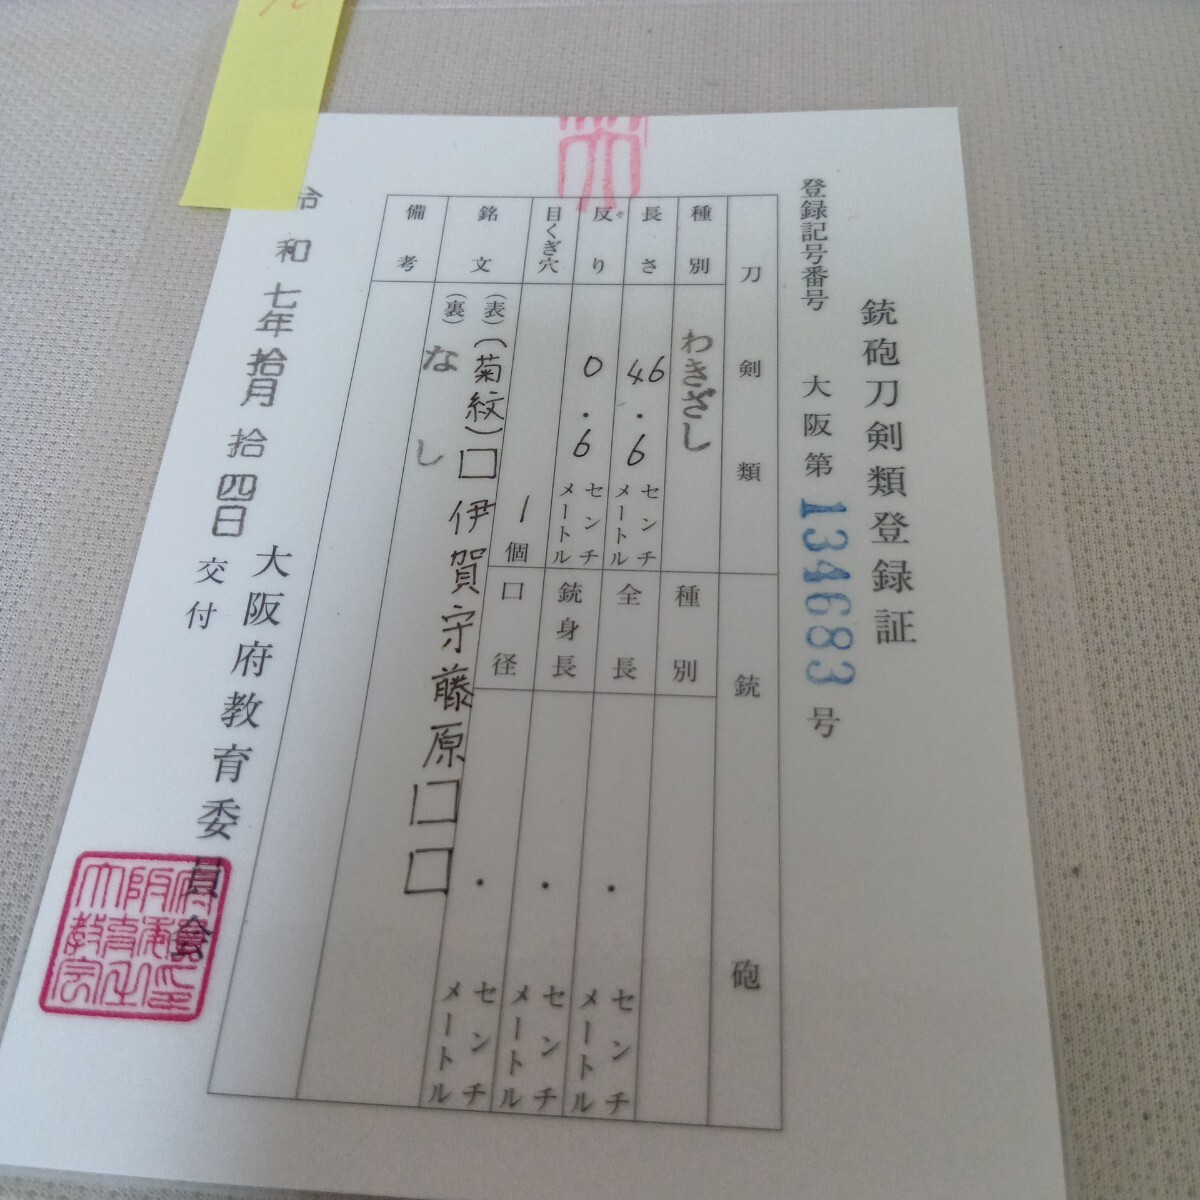 銃砲刀剣類登録証
登録記号番号 大阪第134683号
刀剣類
種別 わきざし
長さ 46.6 センチメートル
反り そ 0.6 センチメートル
目くぎ穴 1個
銘文 (表)(菊紋)□伊賀守藤原□□
(裏)なし
備考
銃砲
種別
全長 . センチメートル
銃身長 . センチメートル
口径 . センチメートル
令和七年拾月拾四日 交付
大阪府教育委員会
大阪府教育委員会印